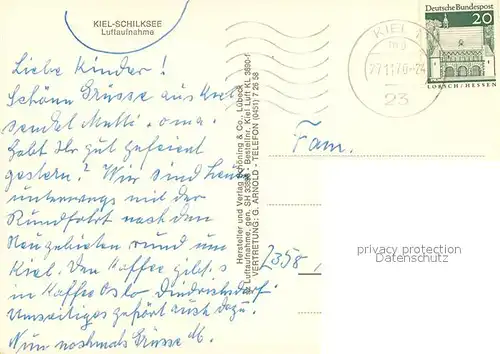 KIEL-SCHILKSEE
Luftaufnahme
Liebe Kinder!
Schöne Grüsse aus Kiel
sendet Mutti + Oma.
Habt Ihr gut gefeiert
gestern? Wir sind heute
unterwegs mit der
Rundfahrt nach den
Neugebieten rund um
Kiel. Den Kaffee gibt's
in Kaffee Oslo Diedrichsdorf
gehört auch dazu.
Nun nochmals Grüsse M.
Hersteller und Verlag Schöning & Co., Lübeck
Luftaufnahme, gen. SH - Bestellnr. Kiel Luft KL 3690-f
VERTRETUNG: G. ARNOLD - TELEFON (0451) 7 26 58
Deutsche Bundespost
20
LORSCH/HESSEN
KIEL 1
mg
27.11.70-24
23
Fam.
2358
privacy protection
Datenschutz